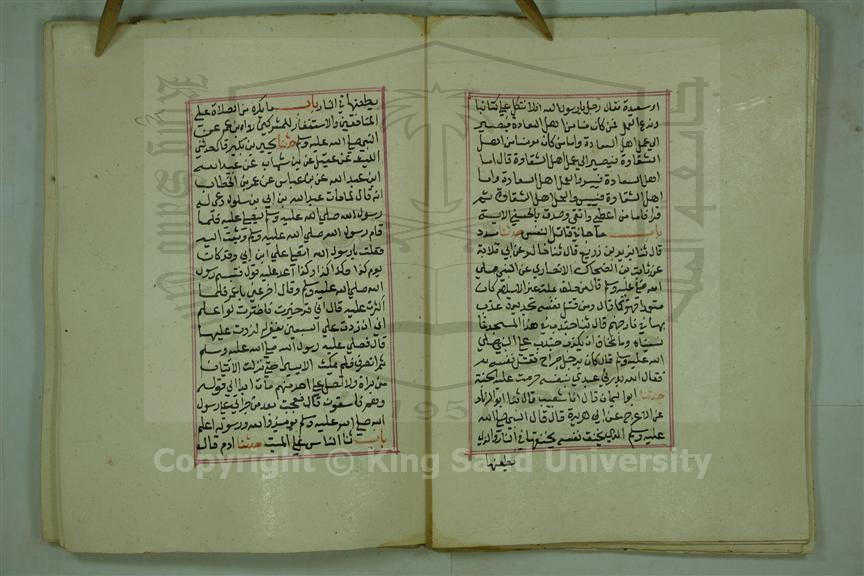 او سعيدة فقال رجل يا رسول الله افلا نتكل على كتابنا
وندع العمل فمن كان منا من اهل السعادة فيصير
الى عمل اهل السعادة واما من كان منا من اهل
الشقاوة فيصير الى عمل اهل الشقاوة قال اما
اهل السعادة فييسروا لعمل اهل السعادة واما
اهل الشقاوة فييسروا لعمل اهل الشقاوة ثم
قرا فاما من اعطى واتقى وصدق بالحسنى الاية
باب ما جا في قاتل النفس حدثنا مسدد
قال ثنا يزيد بن زريع قال ثنا خالد عن ابي قلابة
عن ثابت بن الضحاك عن النبي صلى
الله عليه وسلم قال من حلف بملة غير الاسلام كاذبا
متعمدا فهو كما قال ومن قتل نفسه بحديدة عذب
بها في نار جهنم قال ثنا جندب في هذا المسجد فما
نسيناه وما نخاف ان يكذب جندب على النبي صلى
الله عليه وسلم قال كان برجل جراح فقتل نفسه
فقال الله بدرني عبدي بنفسه حرمت عليه الجنة
حدثنا ابو اليمان قال انا شعيب قال ثنا ابو الزناد
عن الاعرج عن ابي هريرة قال قال النبي صلى الله
عليه وسلم الذي يخنق نفسه يخنقها في النار والذي
يطعنها
يطعنها في النار باب ما يكره من الصلاة على
المنافقين والاستغفار للمشركين رواه ابن عمر عن
النبي صلى الله عليه وسلم حدثنا يحيى بن بكير قال حدثني
الليث عن عقيل عن ابن شهاب عن عبيد الله
ابن عبد الله عن ابن عباس عن عمر بن الخطاب
انه قال لما مات عبد الله بن ابي بن سلول دعي له
رسول الله صلى الله عليه وسلم ليصلي عليه فلما
قام رسول الله صلى الله عليه وسلم وثبت اليه
فقلت يا رسول الله اتصلي على ابن ابي وقد قال
يوم كذا وكذا كذا وكذا اعدد عليه قوله فتبسم رسول
الله صلى الله عليه وسلم وقال اخر عني يا عمر فلما
اكثرت عليه قال اني قد خيرت فاخترت لو اعلم
اني ان زدت على السبعين يغفر له لزدت عليها
قال فصلى عليه رسول الله صلى الله عليه وسلم
ثم انصرف فلم يمكث الا يسيرا حتى نزلت الايتان
من براة ولا تصل على احد منهم مات ابدا الى قوله
وهم فاسقون قال فعجبت بعد من جراتي على رسول
الله صلى الله عليه وسلم يومئذ والله ورسوله اعلم
باب ثنا الناس على الميت حدثنا ادم قال
Copyright © King Saud University
1957